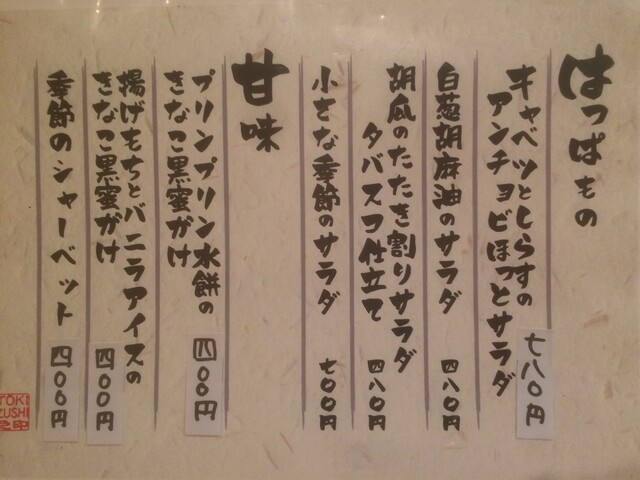 はっぱもの
キャベツとしらすの
アンチョビほっとサラダ
七八〇円
白葱胡麻油のサラダ 四八〇円
胡瓜のたたき割りサラダ
タバスコ仕立て 四八〇円
小さな季節のサラダ 七〇〇円
甘味
プリンプリン水餅の
きなこ黒蜜がけ
四〇〇円
揚げもちとバニラアイスの
きなこ黒蜜がけ
四〇〇円
季節のシャーベット
四〇〇円
TOKI
ZUSHI